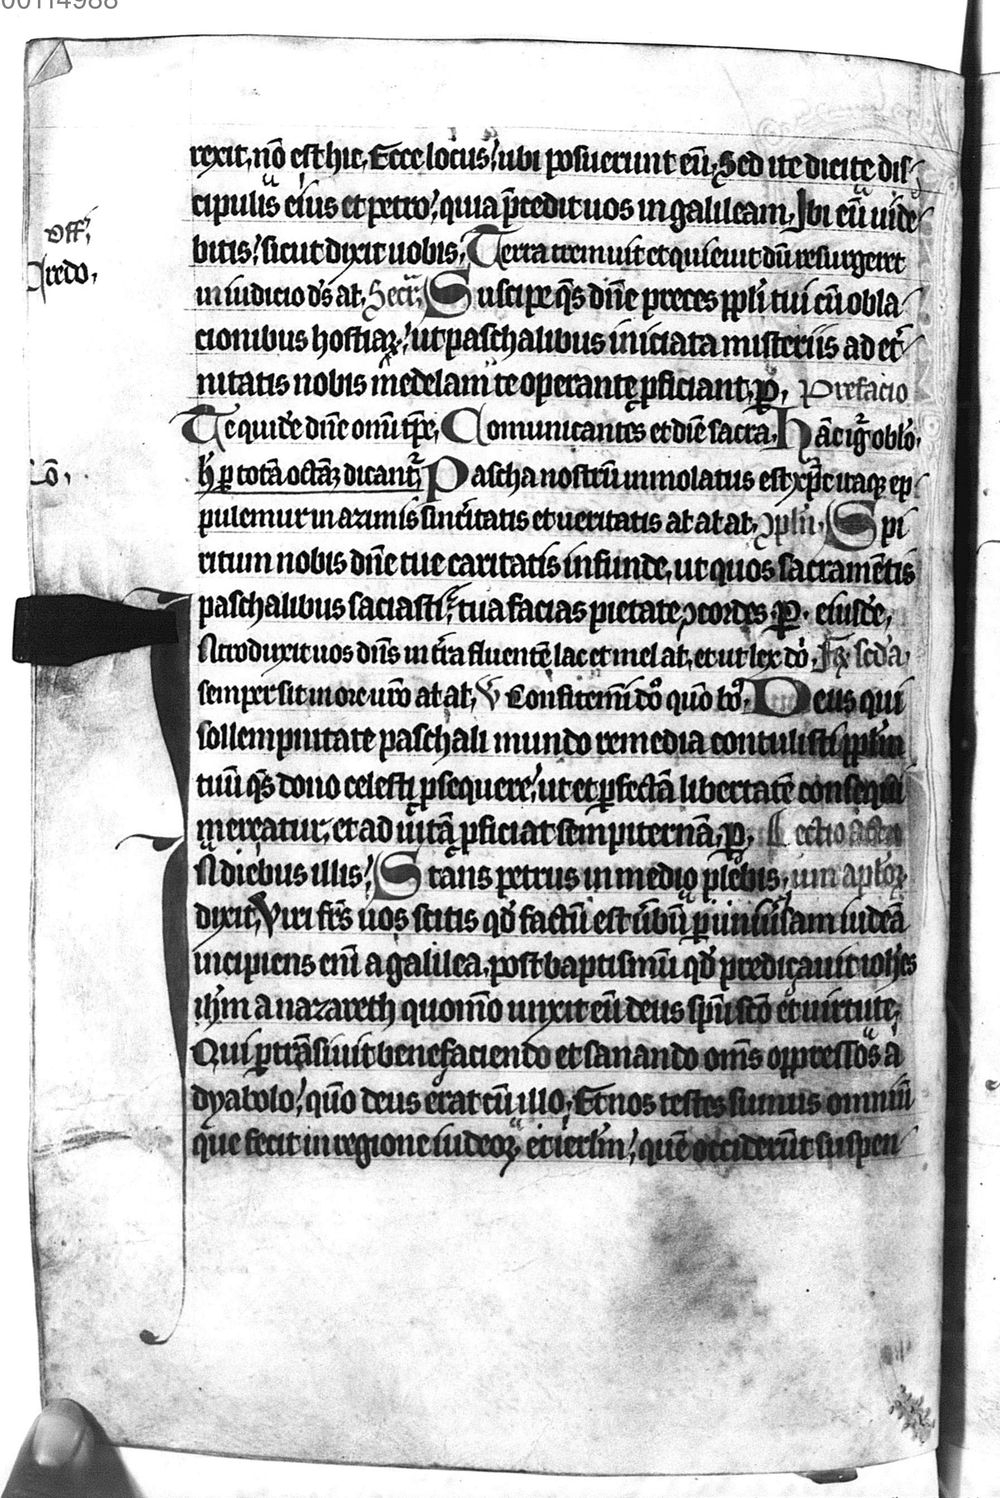 00114988
rexit, nō est hic, Ecce locus, ubi posuerunt eū, Sed ite dicite dis
cipulis eius et petro, quia p̄cedit uos in galileam, Ibi eū uide
off̄,
bitis, sicut dixit uobis, Terra tremuit et quieuit dū resurgeret
Credo,
in iudicio d̄s al, Secr̄, Suscipe q̄s dn̄e preces ppl̄i tui cū obla
cionibus hostiaꝝ, ut paschalibus iniciata misteriis ad et̄
nitatis nobis medelam te operante ꝓficiant, ꝑ, Prefacio
Te quidē dn̄e omī tp̄e, Comunicantes et diē sacrā, Hāc iḡ oblō,
Cō,
h̄ ꝑ totā octāꝫ dicant᷑ Pascha nostrū immolatus est xp̄c itaqꝫ ep
pulemur in azimis sinc̄itatis et ueritatis al al al, ꝯpln̄, Spi
ritum nobis dn̄e tue caritatis infunde, ut quos sacramētis
paschalibus saciasti, tua facias pietate ꝯcordes, ꝑ, eiusdē,
Introduxit uos dn̄s in t̄ra fluentē lac et mel al, et ut lex dō, Fr̄ sc̄da
semper sit in ore ur̄o al al, V Confitemī dō quō bō, Deus qui
sollempnitate paschali mundo remedia contulisti ppl̄m
tuū q̄s dono celesti ꝓsequere, ut et ꝑfectā libertatē consequi
mereatur, et ad uitā ꝓficiat sempiternā, ꝑ, Lectio actu
In diebus illis, Stans petrus in medio plebis, um apl̄oꝝ
dixit, Viri fr̄s uos scitis qd̄ factū est ūbū ꝑ uniūsam iudeā
incipiens eni a galilea, post baptismū qd̄ predicauit ioh̄es
ih̄m a nazareth quomō unxit eū deus sp̄u sc̄o et uirtute,
Qui ꝑtrāsiuit benefaciendo et sanando om̄s oppressos a
dyabolo, qūo deus erat cū illo, Et nos testes sumus omniū
que fecit in regione iudeoꝝ et ierl̄m, quē occiderūt suspen